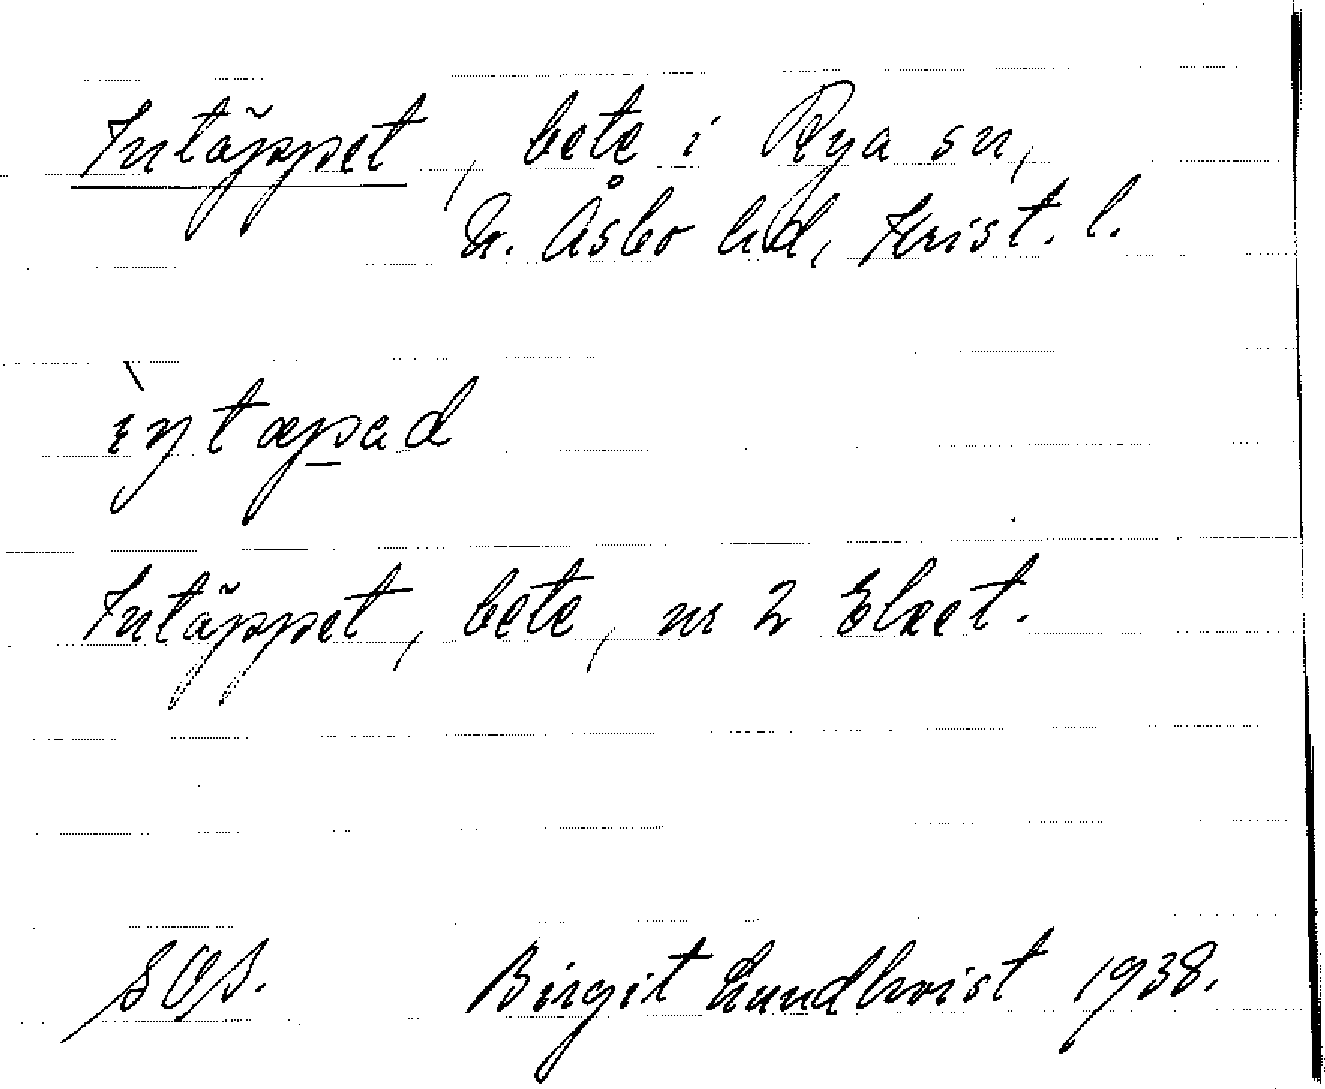 Intäppet, bete i Rya sn,
N. Åsbo hd, Krist. l.
ìntæpad
Intäppet, bete, nr 2 Elset.
SOA. Birgit Lundkvist 1938.